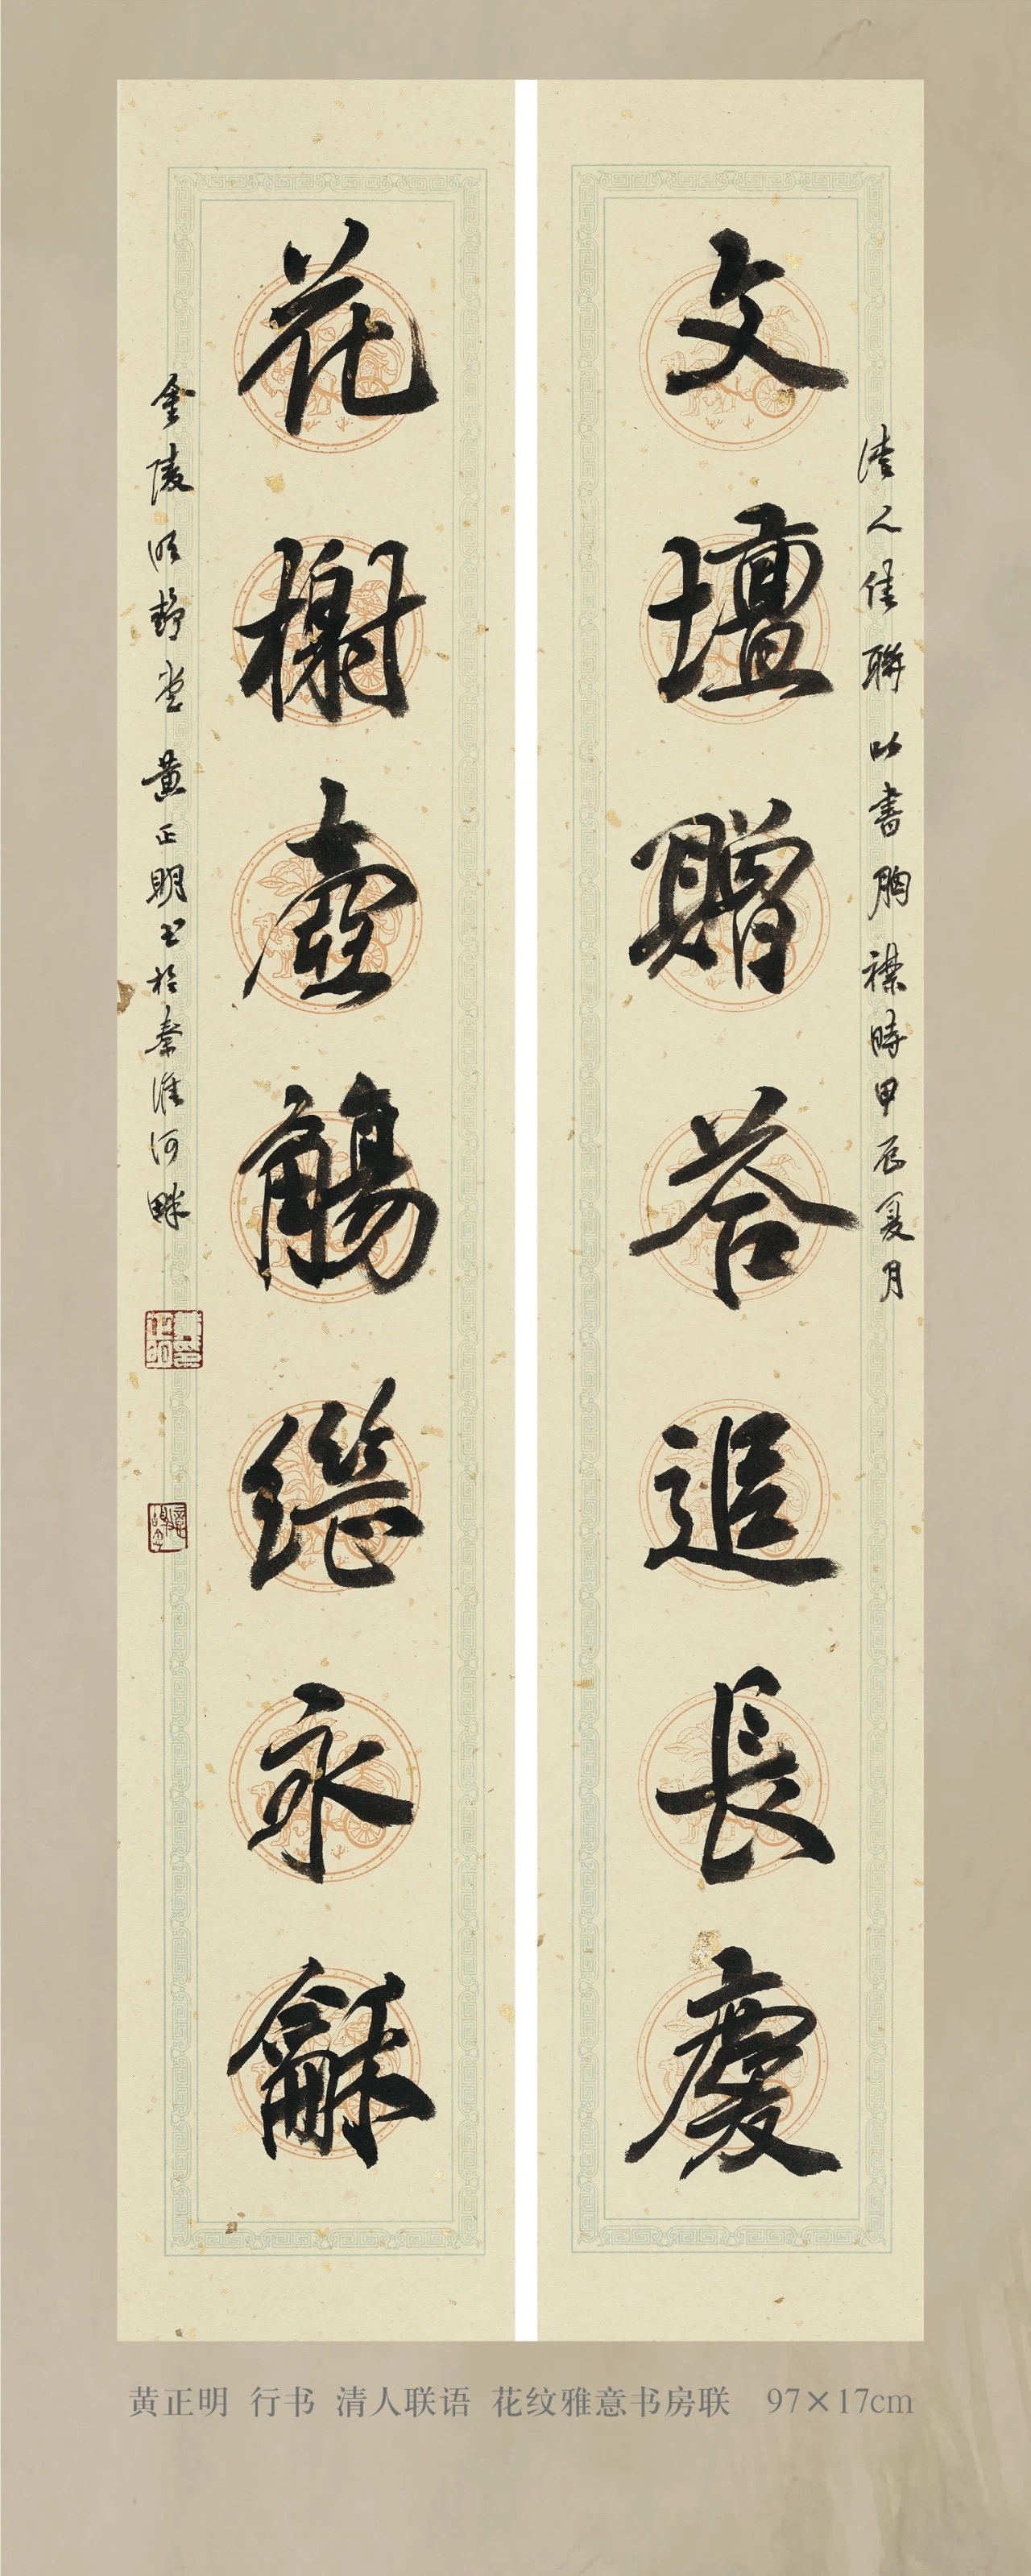 清人佳聯以書胸襟時甲辰夏月
文壇贈荅追長慶
花榭壺觴繼永龢
金陵順静堂黄正明书於秦淮河畔
黄正明 行书 清人联语 花纹雅意书房联 97×17cm